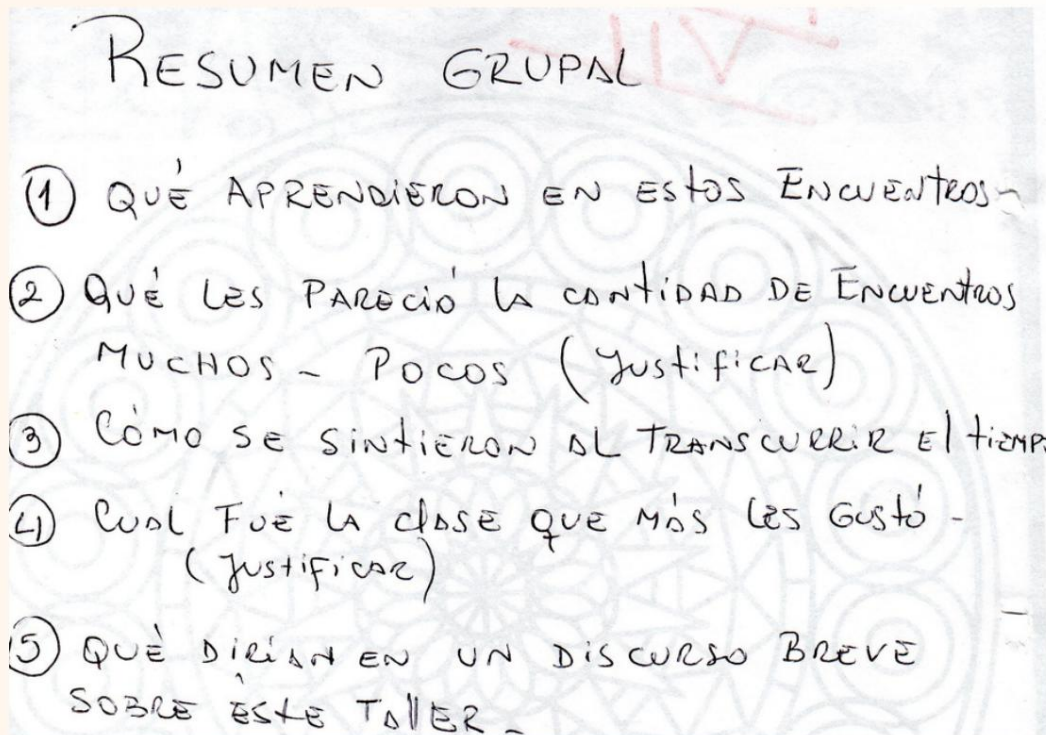 RESUMEN GRUPAL
① QUÉ APRENDIERON EN ESTOS ENCUENTROS-
② QUÉ LES PARECIÓ LA CANTIDAD DE ENCUENTROS
MUCHOS - POCOS (JUSTIFICAR)
③ CÓMO SE SINTIERON AL TRANSCURRIR El tiEMP
④ CUAL FUÉ LA clASE QUE MÁS LES GUSTÓ -
(JUSTIFICAR)
⑤ QUÉ DIRÍAN EN UN DISCURSO BREVE
SOBRE ÉSTE TAllER -